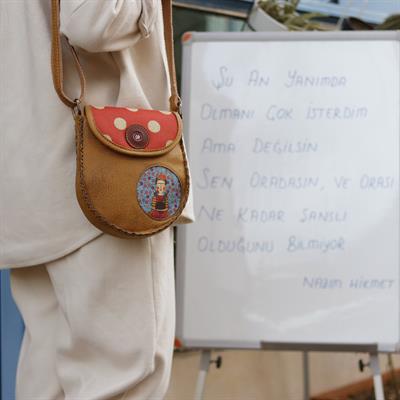 Şu An Yanımda
Olmanı Çok İsterdim
Ama Değilsin
Sen Oradasın, ve Orası
Ne Kadar Şanslı
Olduğunu Bilmiyor
Nazım Hikmet